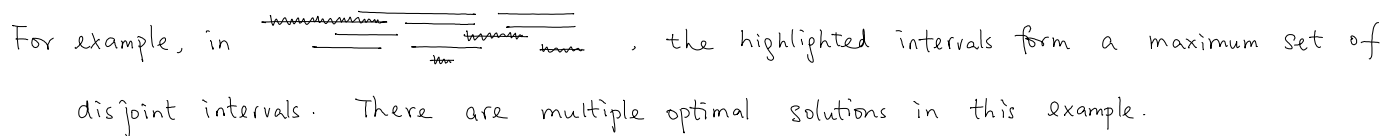 For example, in , the highlighted intervals form a maximum set of
disjoint intervals. There are multiple optimal solutions in this example.